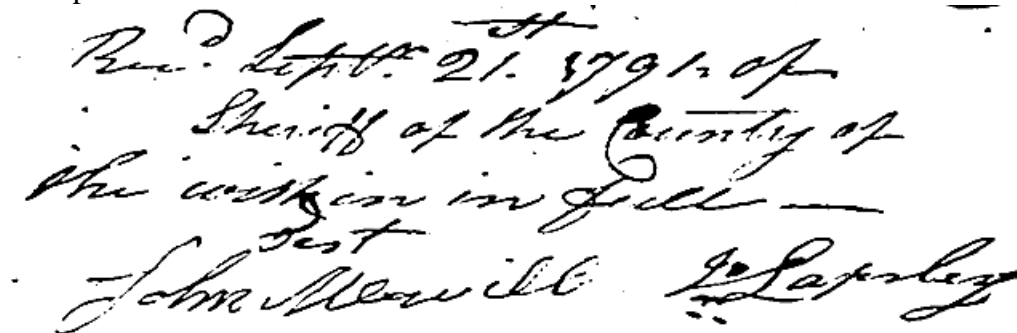 Recd. Septbr. 21st. 1791 of
Sheriff of the County of
the within in full —
Test
John Jno Lapsley